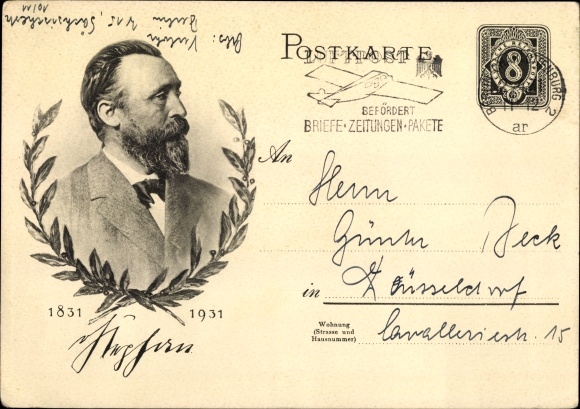 Abs:
Berlin W 15, Sächsischestr
10/11
POSTKARTE
LUFTPOST
BEFÖRDERT
BRIEFE·ZEITUNGEN·PAKETE
8
BURG 2
ar
An
Herrn
Günter Beck
in Düsseldorf
Wohnung
(Strasse und
Hausnummer)
Cavalleriestr. 15
1831 1931
Stephan